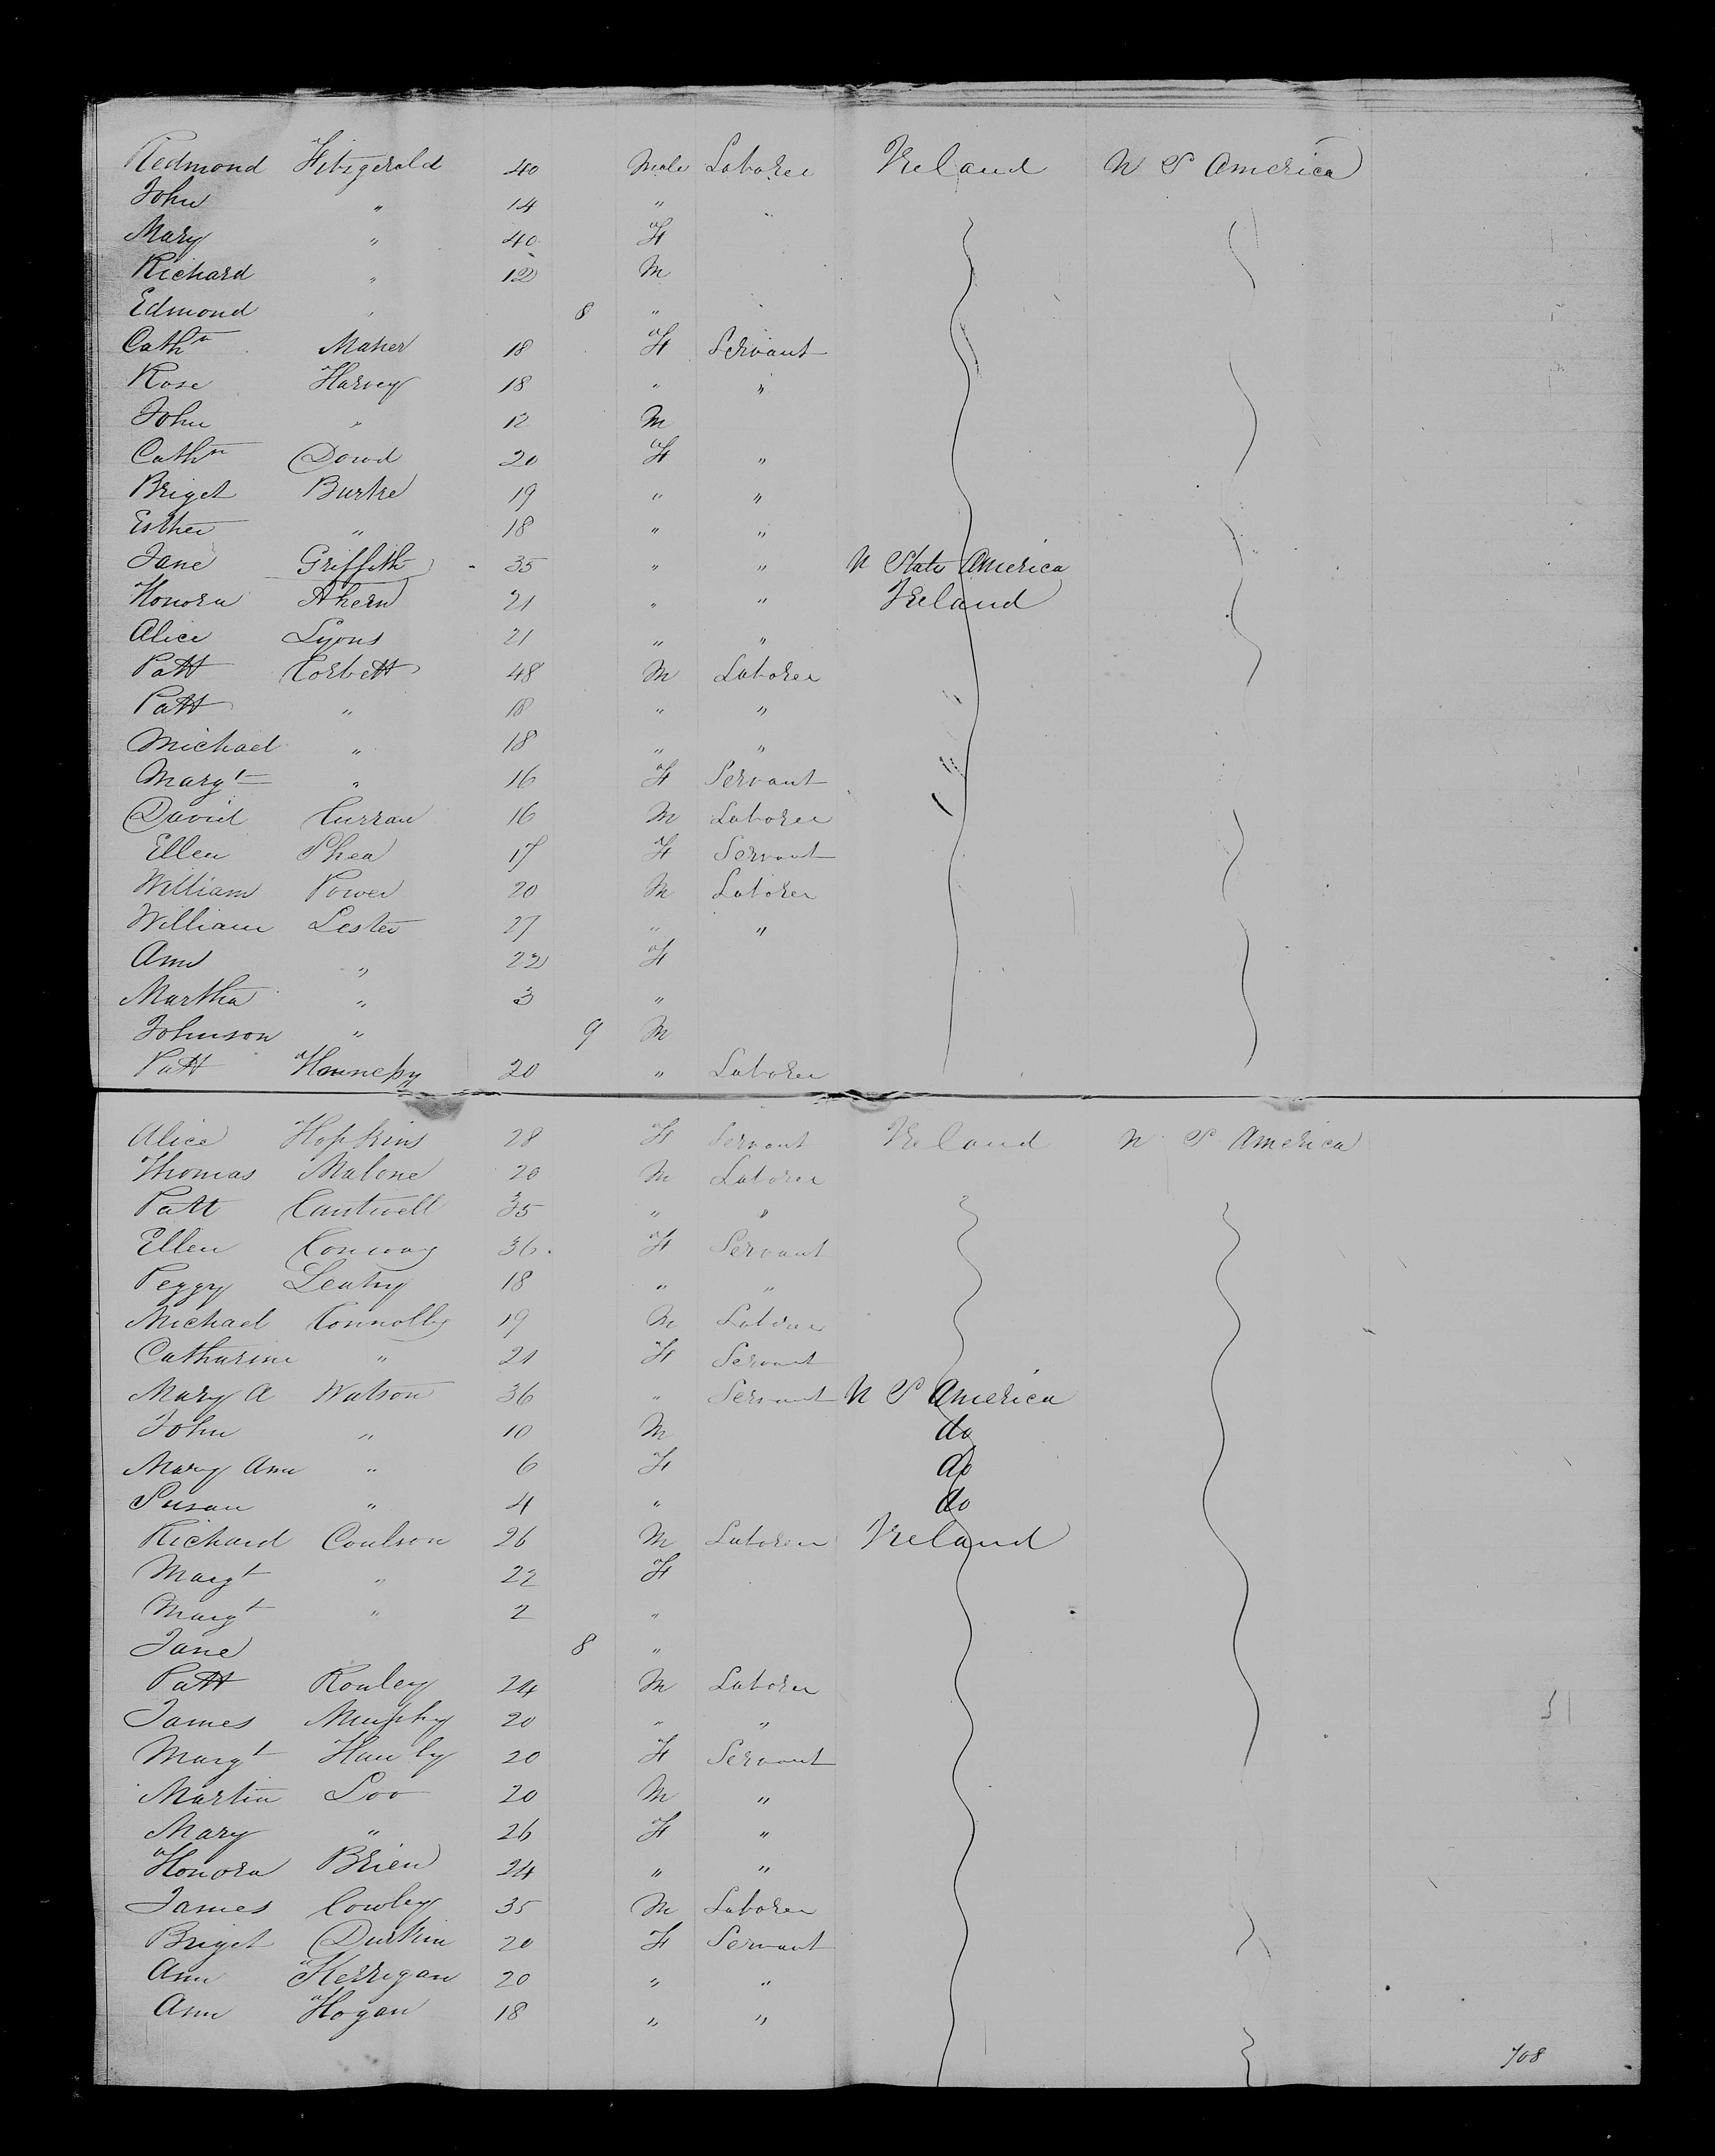 Redmond Fitzgerald 40 Male Laborer Ireland N S America
John " 14 " "
Mary " 40 F
Richard " 12 M
Edmond " 8 "
Cathn Maher 18 F Servant
Rose Harvey 18 " "
John " 12 M
Cathn Dowd 20 F "
Briget Burke 19 " "
Esther " 18 " "
Jane Griffith 35 " " N State America
Honora Ahern 21 " " Ireland
Alice Lyons 21 " "
Patt Corbett 48 M Laborer
Patt " 18 " "
Michael " 18 " "
Margt " 16 F Servant
David Curran 16 M Laborer
Ellen Shea 17 F Servant
William Power 20 M Laborer
William Lester 27 " "
Ann " 22 F
Martha " 3 "
Johnson " 9 M
Patt Hennessy 20 " Laborer
Alice Hopkins 28 F Servant Ireland N S America
Thomas Malone 20 M Laborer
Patt Cantwell 35 " "
Ellen Conway 36 F Servant
Peggy Leahy 18 " "
Michael Connolly 19 M Laborer
Catharine " 21 F Servant
Mary A Watson 36 " Servant N S America
John " 10 M do
Mary Ann " 6 F do
Susan " 4 " do
Richard Coulson 26 M Laborer Ireland
Margt " 22 F
Margt " 2 "
Jane 8 "
Patt Rouley 24 M Laborer
James Murphy 20 " "
Margt 20 F Servant
Martin 20 M "
Mary " 26 F "
Honora Brien 24 " "
James Cowley 35 M Laborer
Briget Durkin 20 F Servant
Ann Kerrigan 20 " "
Ann Hogan 18 " "
708